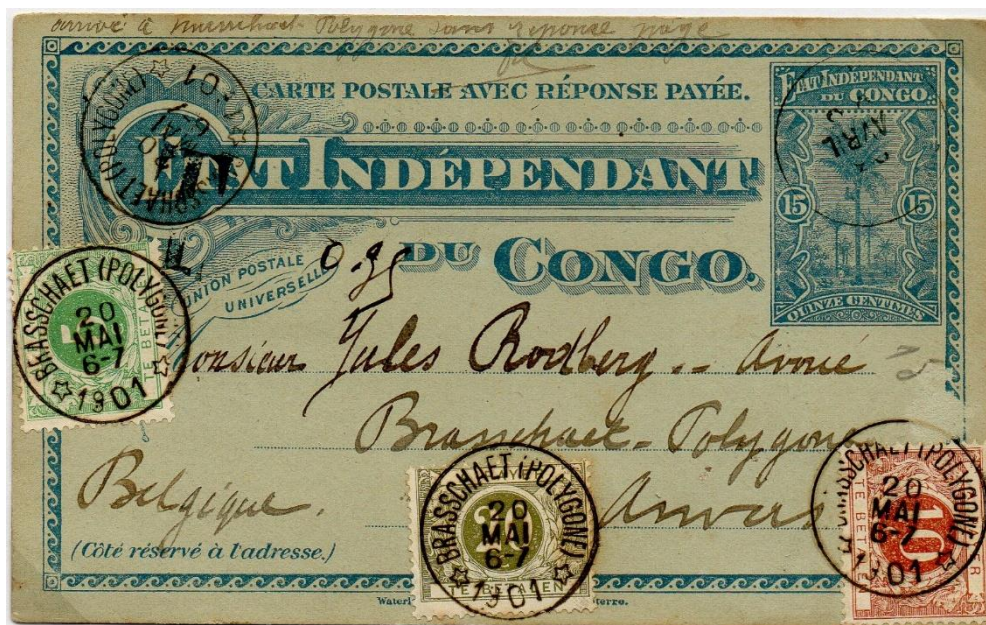 arrivé à Polygone sans réponse payée
CARTE POSTALE AVEC RÉPONSE PAYÉE.
ETAT INDÉPENDANT
DU CONGO.
ETAT INDÉPENDANT
DU CONGO.
AVRIL
15 15
QUINZE CENTIMES
UNION POSTALE
UNIVERSELLE
T
0.35
Monsieur Jules Rodberg -- avoué
Brasschaet-Polygone
Anvers
Belgique.
(Côté réservé à l'adresse.)
BRASSCHAET (POLYGONE)
20
MAI
6-7
1901
5
TE BETAL
BRASSCHAET (POLYGONE)
20
MAI
6-7
1901
TE BETALEN
BRASSCHAET (POLYGONE)
20
MAI
6-7
1901
10
TE BETALEN
Waterl